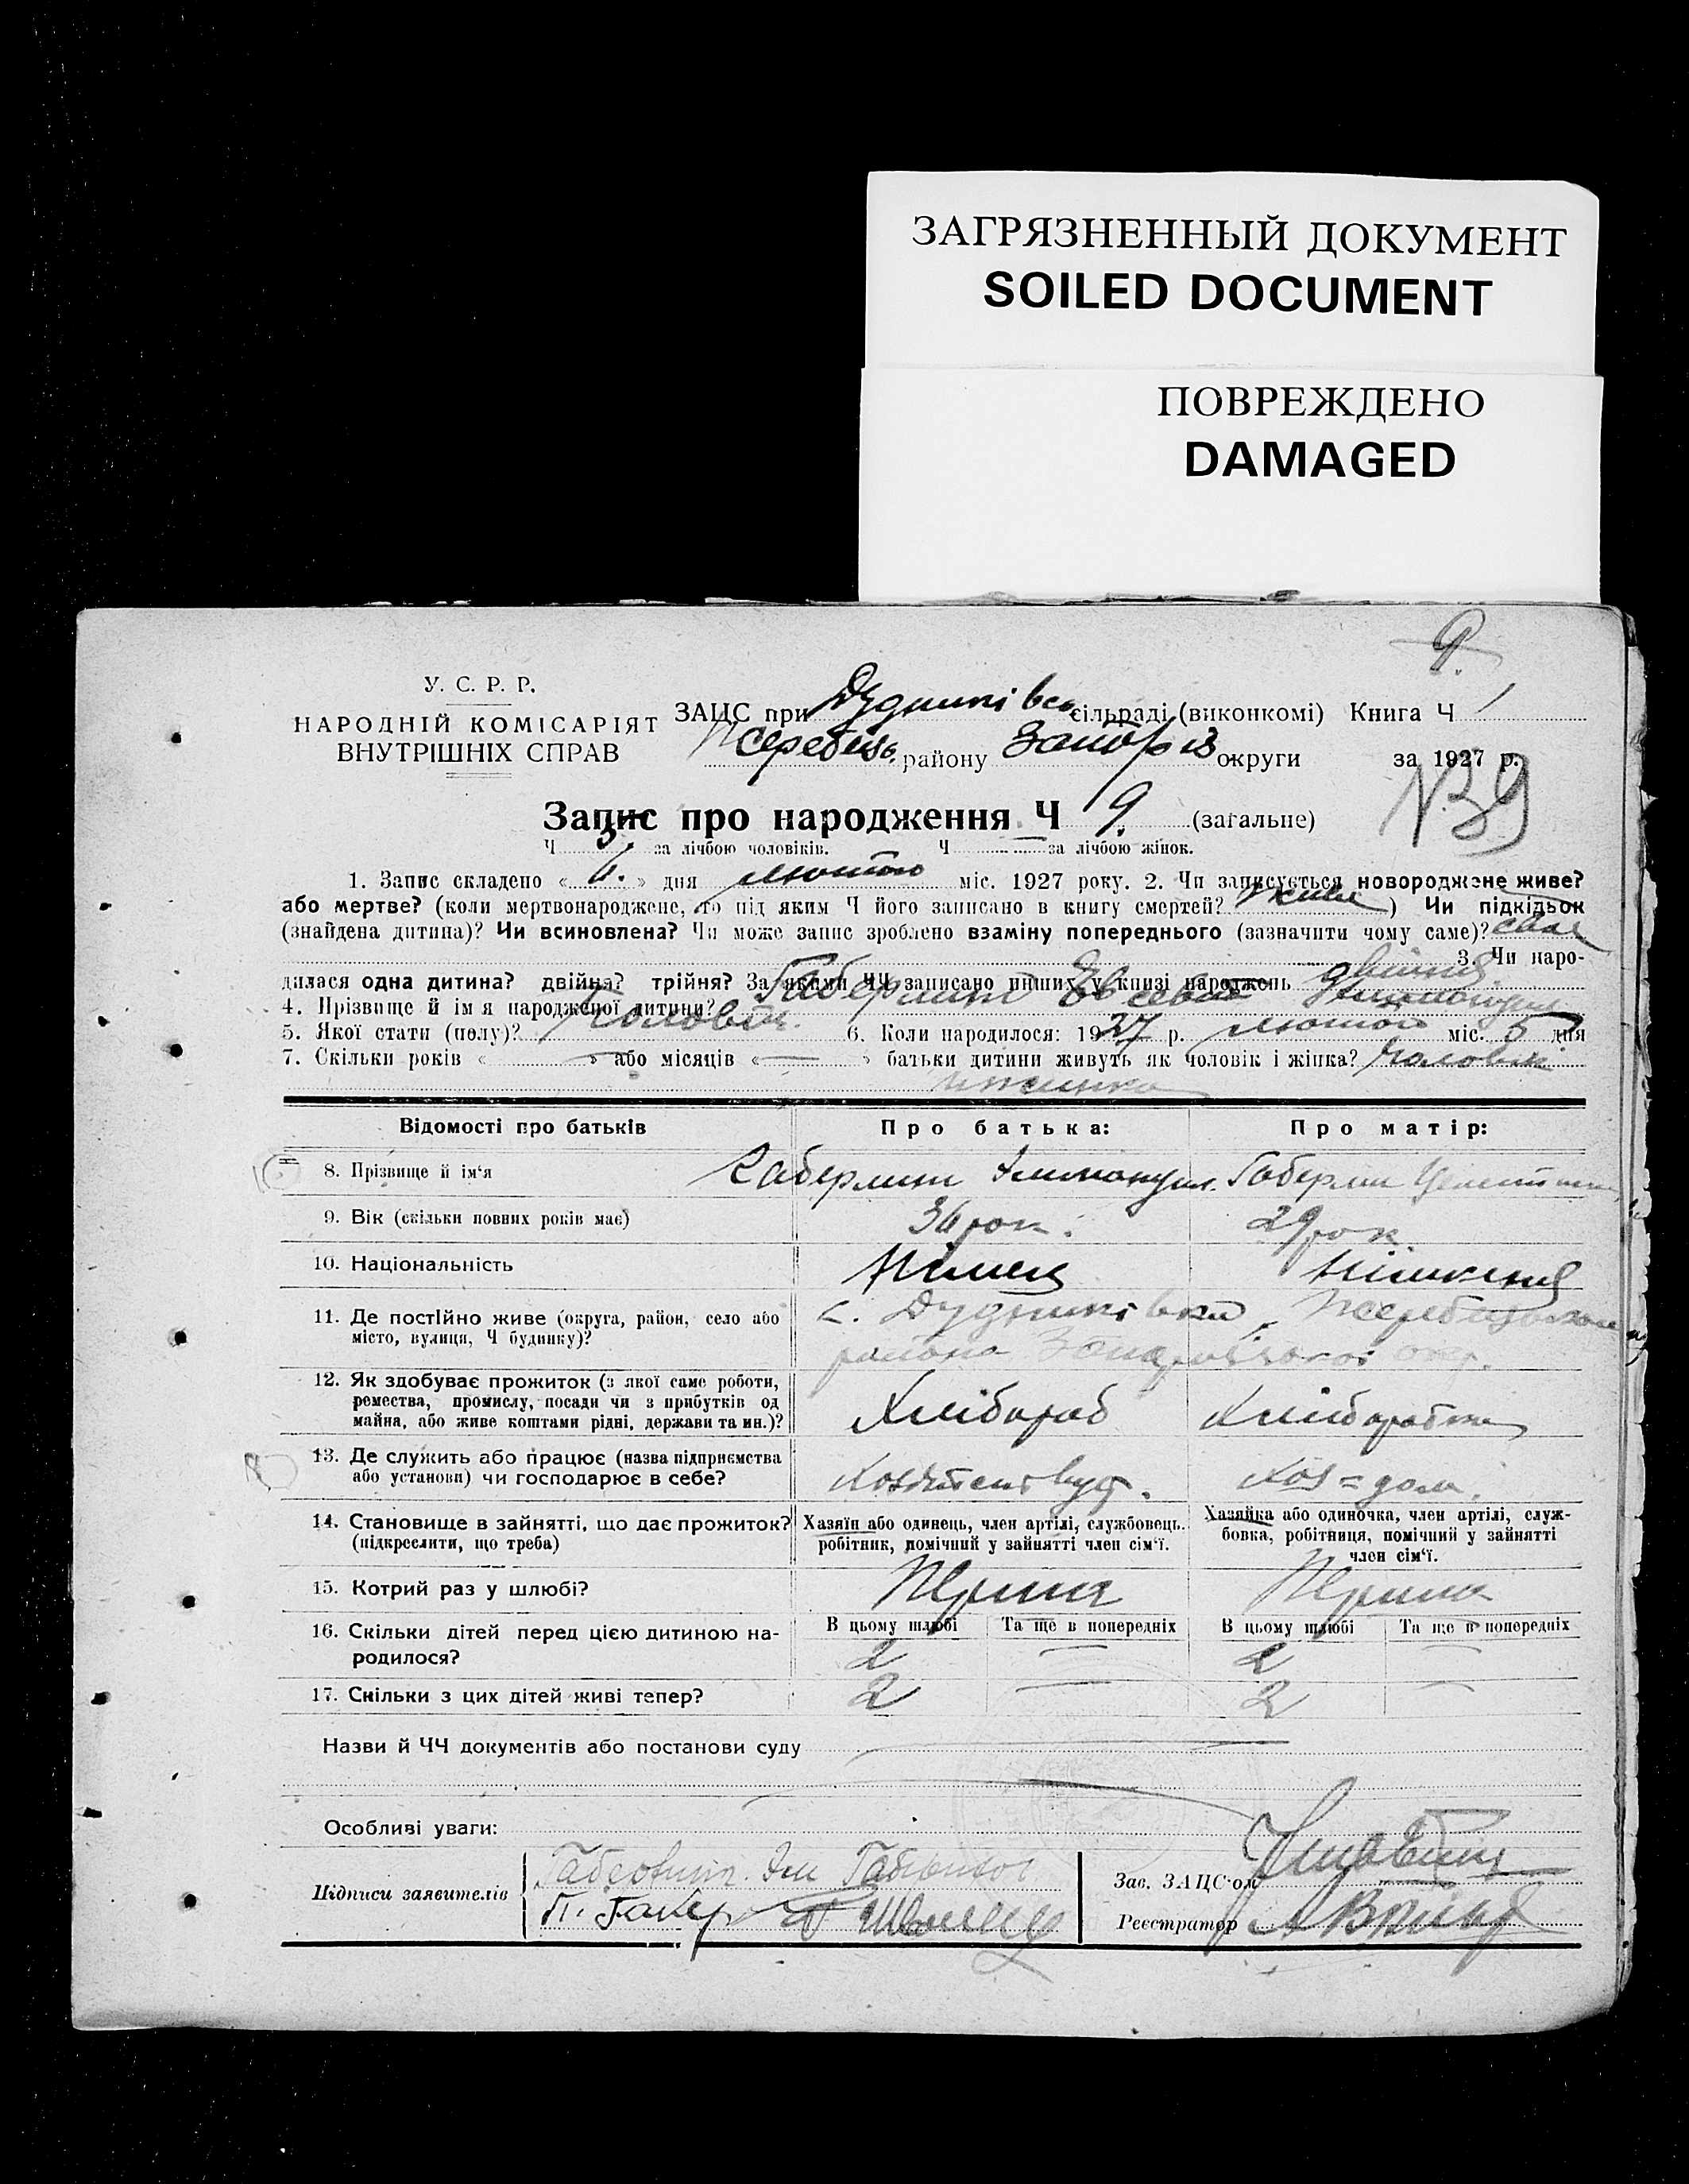 ЗАГРЯЗНЕННЫЙ ДОКУМЕНТ
SOILED DOCUMENT
ПОВРЕЖДЕНО
DAMAGED
9.
У. С. Р. Р.
НАРОДНІЙ КОМІСАРІЯТ
ВНУТРІШНІХ СПРАВ
ЗАЦС при сільраді (виконкомі) Книга Ч 1
Жеребець. району Запоріз округи за 1927 р.
N. 39
Запис про народження Ч 9. (загальне)
Ч 5. за лічбою чоловіків. Ч за лічбою жінок.
1. Запис складено « 6. » дня лютого міс. 1927 року. 2. Чи записується новороджене живе?
або мертве? (коли мертвонароджене, то під яким Ч його записано в книгу смертей? живе) Чи підкідьок
(знайдена дитина)? Чи всиновлена? Чи може запис зроблено взаміну попереднього (зазначити чому саме)? своя
3. Чи наро-
дилася одна дитина? двійня? трійня? За якими ЧЧ записано инших у книзі народжень двійня
4. Прізвище й ім'я народженої дитини? Габерлин
5. Якої стати (полу)? Чоловіч. 6. Коли народилося: 1927 р. лютого міс. 5 дня
7. Скільки років « » або місяців « » батьки дитини живуть як чоловік і жінка? чоловік
и жинка
Відомості про батьків Про батька: Про матір:
8. Прізвище й ім'я Габерлин Габерлин
9. Вік (скільки повних років має) 36 рок. 29 рок.
10. Національність Німец Німкеня
11. Де постійно живе (округа, район, село або с. Дудниківка, Жеребецького
місто, вулиця, Ч будинку)? района Запорізької окр.
12. Як здобуває прожиток (з якої саме роботи,
ремества, промислу, посади чи з прибутків од
майна, або живе коштами рідні, держави та ин.)? Хлібороб Хлиборобка
13. Де служить або працює (назва підприємства
або установи) чи господарює в себе?
14. Становище в зайнятті, що дає прожиток? Хазяїн або одинець, член артілі, службовець. Хазяйка або одиночка, член артілі, служ-
(підкреслити, що треба) робітник, помічний у зайнятті член сім'ї. бовка, робітниця, помічний у зайнятті
член сім'ї.
15. Котрий раз у шлюбі? Перший Перший
В цьому шлюбі Та ще в попередніх В цьому шлюбі Та ще в попередніх
16. Скільки дітей перед цією дитиною на-
родилося? 2 — 2 —
17. Скільки з цих дітей живі тепер? 2 — 2 —
Назви й ЧЧ документів або постанови суду
Особливі уваги:
Підписи заявителів
Зав. ЗАЦС'ом
Реєстратор